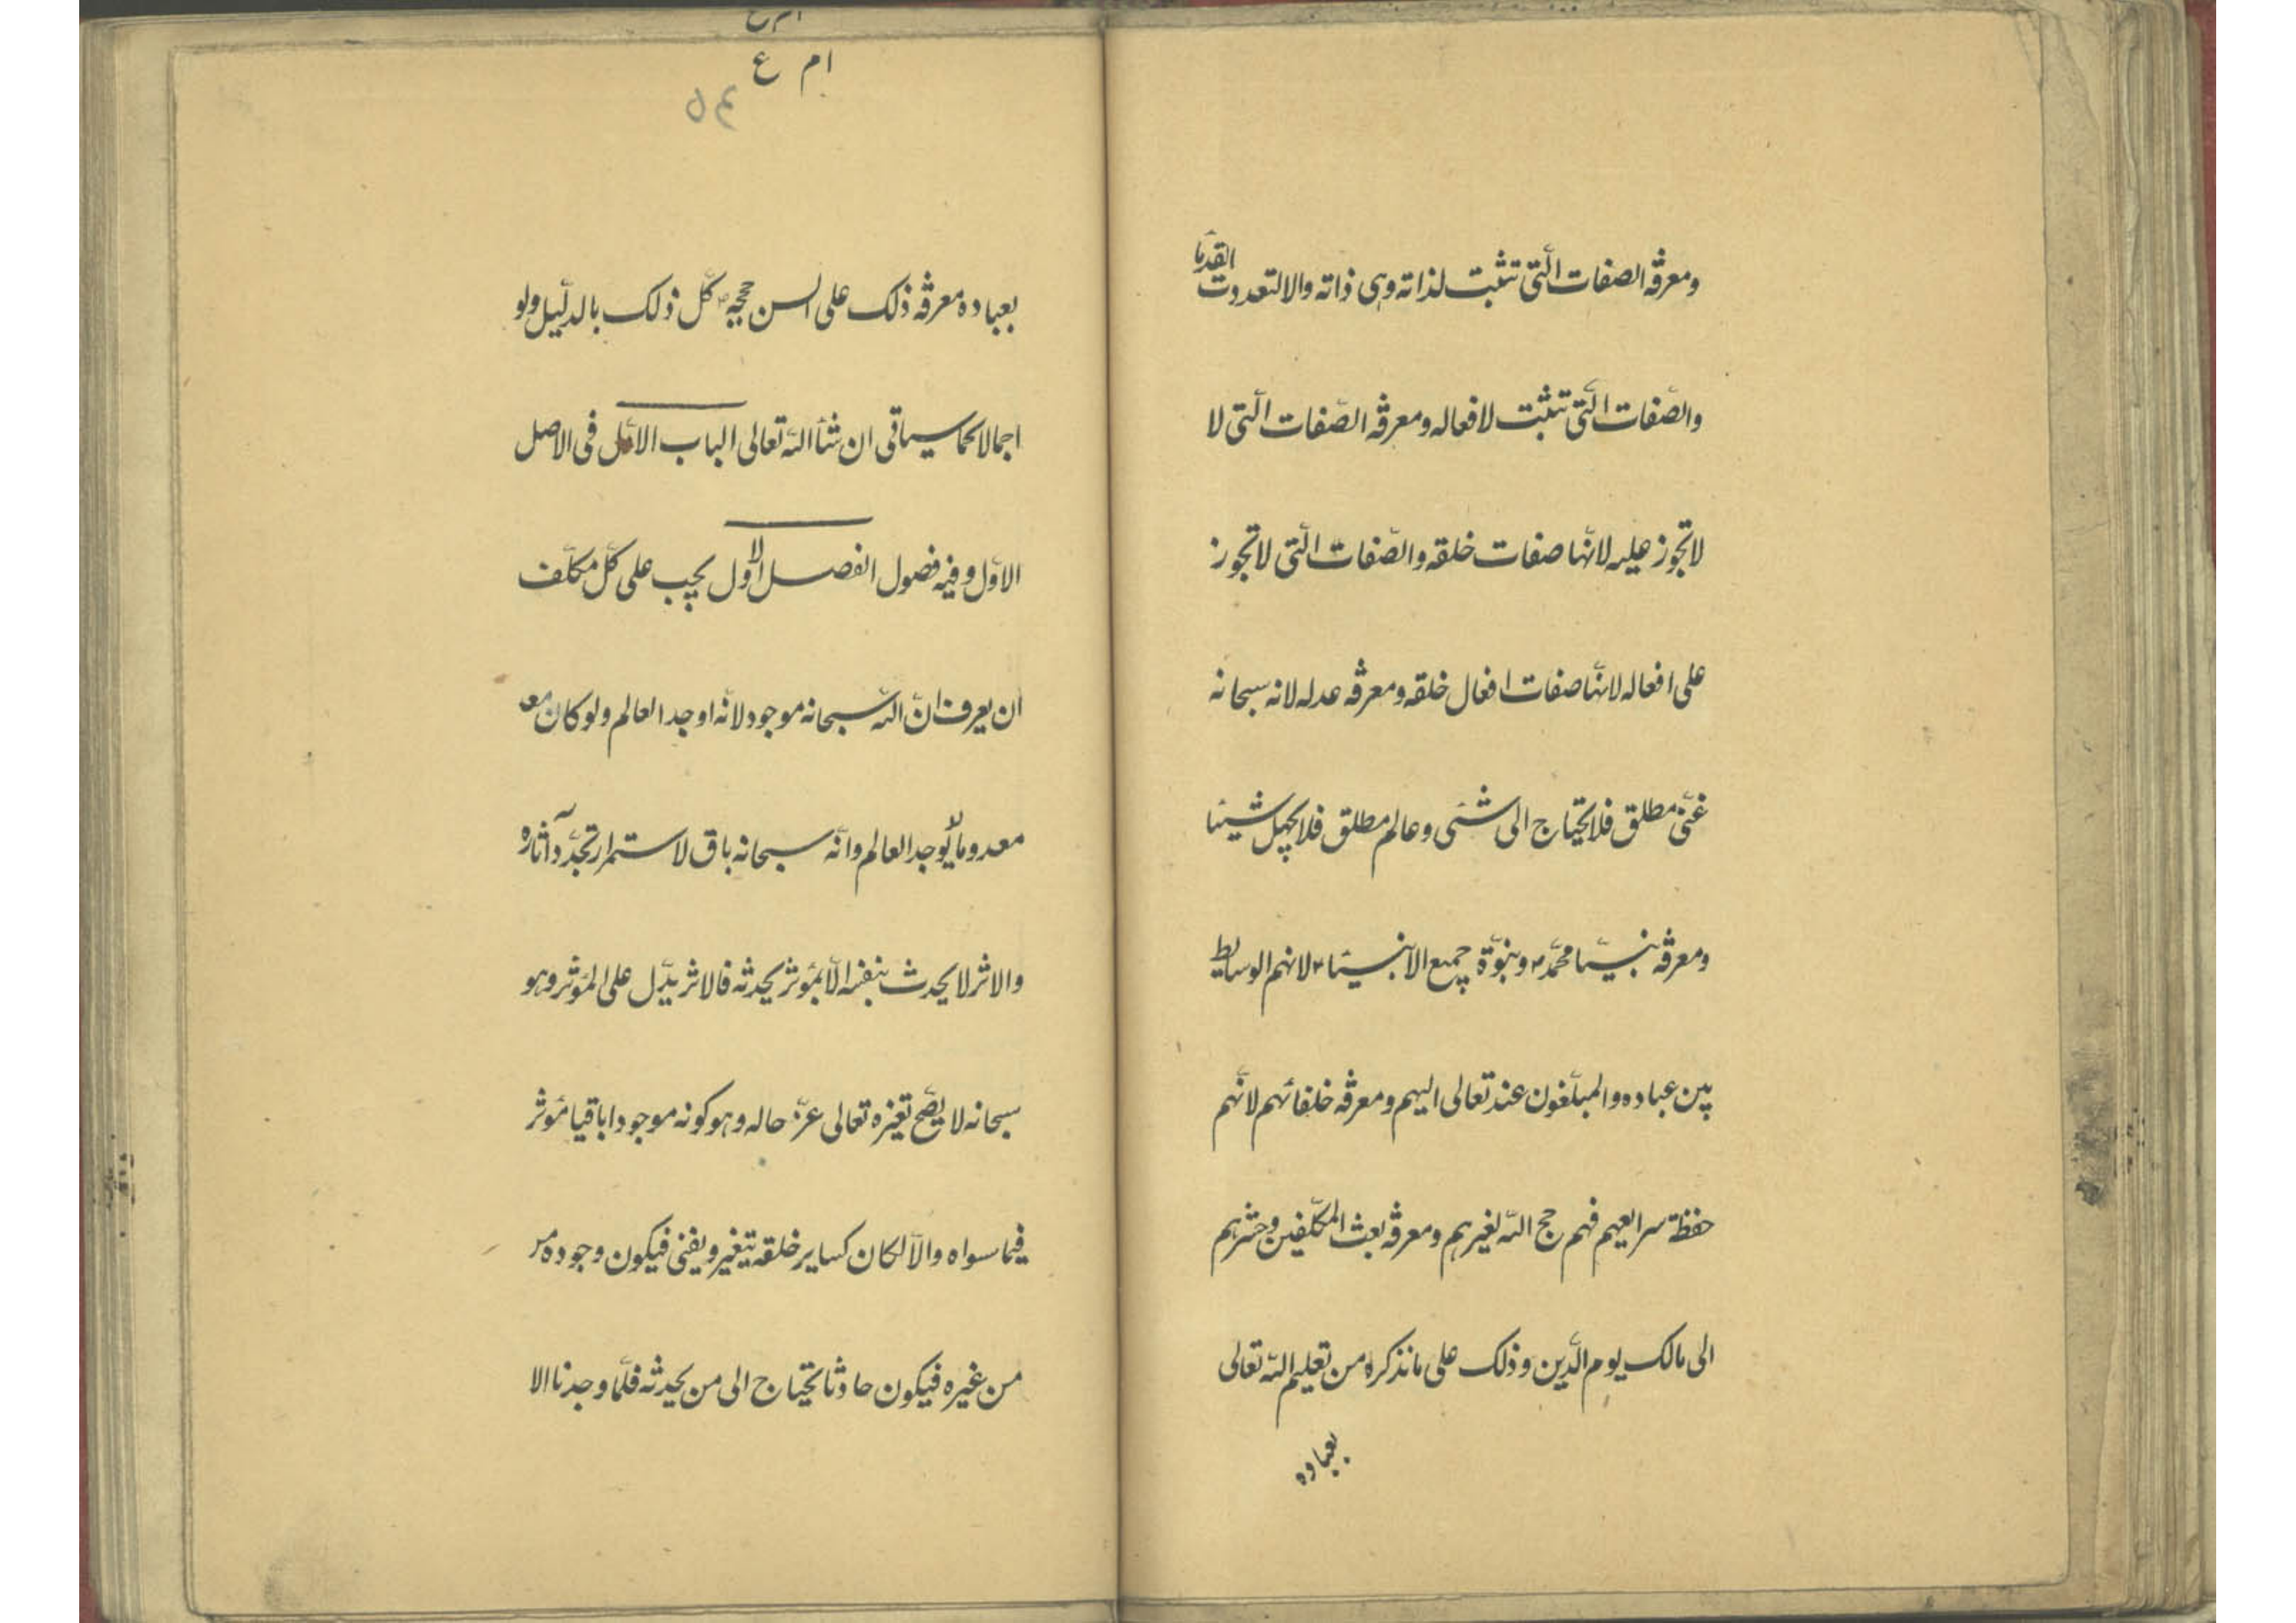 ومعرفة الصفات الّتى تثبت لذاته وهى ذاته والا لتعددت القدمآ
والصّفات الّتى تثبت لافعاله ومعرفة الصّفات الّتى لا
لا تجوز عليه لانّها صفات خلقه والصّفات الّتى لا تجوز
على افعاله لانّها صفات افعال خلقه ومعرفة عدله لانه سبحانه
غنىّ مطلق فلا يحتاج الى شئى وعالم مطلق فلا يجهل شيئا
ومعرفة نبيّنا محمّد ص ونبوّة جميع الانبيئا ع لانهم الوسايط
بين عباده والمبلّغون عنه تعالى اليهم ومعرفة خلفائهم لانّهم
حفظة سرايعهم فهم حجج اللّه لغيرهم ومعرفة بعث المكلّفين وحشرهم
الى مالك يوم الّدين وذلك على ما نذكره من تعليم اللّه تعالى
بعباده
ام ع
بعباده معرفة ذلك على السن حججه ص كلّ ذلك بالدلّيل ولو
اجمالا كما سياتى ان شآء اللّه تعالى الباب الاوّل فى الاصل
الاوّل وفيه فصول الفصل الاول يجب على كلّ مكلّف
ان يعرف انّ اللّه سبحانه موجود لانّه اوجد العالم ولو كان معد
معدوما لم يوجد العالم وانّه سبحانه باق لاستمرار تجدّد آثاره
والاثر لا يحدث بنفسه الّا بمؤثر يحدثه فالاثر يدّل على المؤثر وهو
سبحانه لا يصّح تغيّره تعالى عزّ حاله وهو كونه موجودا باقيا مؤثر
فيما سواه والّا لكان كساير خلقه يتغير ويفنى فيكون وجوده من
من غيره فيكون حادثا يحتاج الى من يحدثه فلمّا وجدنا الا